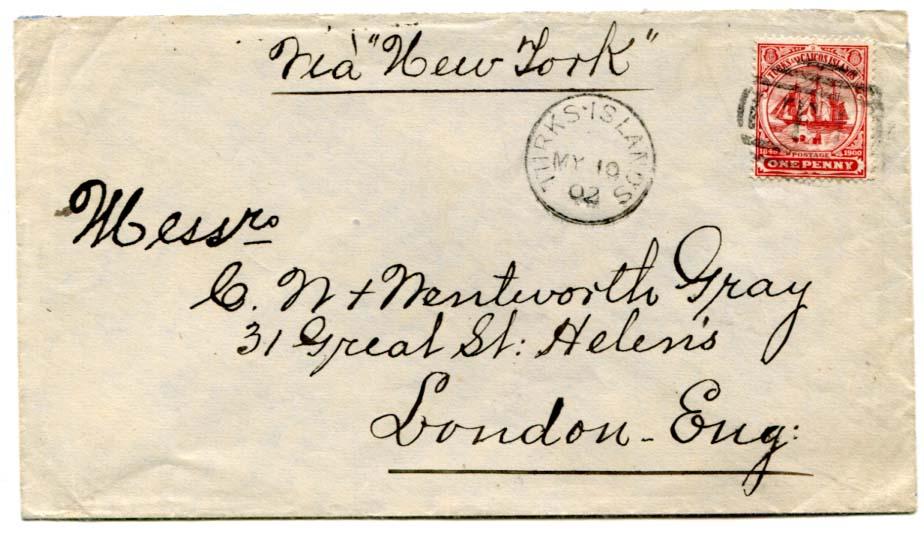 Via "New York"
TURKS AND CAICOS ISLANDS
1848 POSTAGE 1900
ONE PENNY
TURKS·ISLANDS
MY 10
02
Messrs
C. W + Wentworth Gray
31 Great St: Helen's
London - Eng: